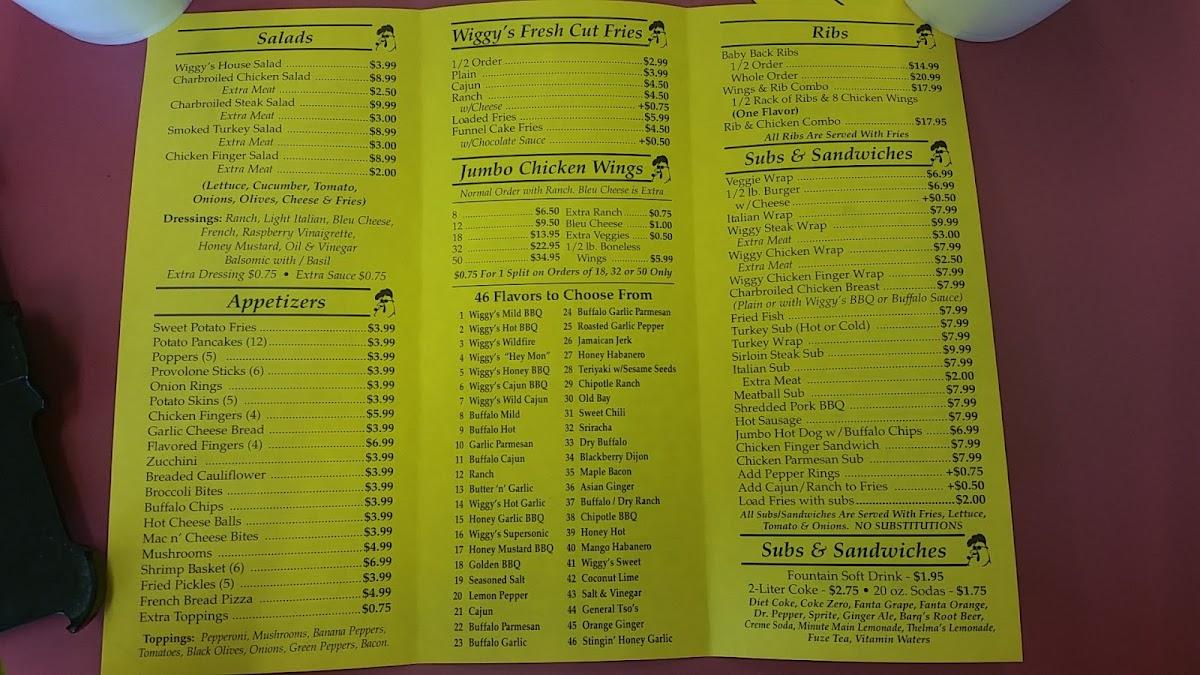 Salads
Wiggy's House Salad $3.99
Charbroiled Chicken Salad $8.99
Extra Meat $2.50
Charbroiled Steak Salad $9.99
Extra Meat $3.00
Smoked Turkey Salad $8.99
Extra Meat $3.00
Chicken Finger Salad $8.99
Extra Meat $2.00
(Lettuce, Cucumber, Tomato,
Onions, Olives, Cheese & Fries)
Dressings: Ranch, Light Italian, Bleu Cheese,
French, Raspberry Vinaigrette,
Honey Mustard, Oil & Vinegar
Balsomic with / Basil
Extra Dressing $0.75 • Extra Sauce $0.75
Appetizers
Sweet Potato Fries $3.99
Potato Pancakes (12) $3.99
Poppers (5) $3.99
Provolone Sticks (6) $3.99
Onion Rings $3.99
Potato Skins (5) $3.99
Chicken Fingers (4) $5.99
Garlic Cheese Bread $3.99
Flavored Fingers (4) $6.99
Zucchini $3.99
Breaded Cauliflower $3.99
Broccoli Bites $3.99
Buffalo Chips $3.99
Hot Cheese Balls $3.99
Mac n' Cheese Bites $3.99
Mushrooms $4.99
Shrimp Basket (6) $6.99
Fried Pickles (5) $3.99
French Bread Pizza $4.99
Extra Toppings $0.75
Toppings: Pepperoni, Mushrooms, Banana Peppers,
Tomatoes, Black Olives, Onions, Green Peppers, Bacon.
Wiggy's Fresh Cut Fries
1/2 Order $2.99
Plain $3.99
Cajun $4.50
Ranch $4.50
w/Cheese +$0.75
Loaded Fries $5.99
Funnel Cake Fries $4.50
w/Chocolate Sauce +$0.50
Jumbo Chicken Wings
Normal Order with Ranch. Bleu Cheese is Extra
8 $6.50 Extra Ranch $0.75
12 $9.50 Bleu Cheese $1.00
18 $13.95 Extra Veggies $0.50
32 $22.95 1/2 lb. Boneless
50 $34.95 Wings $5.99
$0.75 For 1 Split on Orders of 18, 32 or 50 Only
46 Flavors to Choose From
1 Wiggy's Mild BBQ
2 Wiggy's Hot BBQ
3 Wiggy's Wildfire
4 Wiggy's "Hey Mon"
5 Wiggy's Honey BBQ
6 Wiggy's Cajun BBQ
7 Wiggy's Wild Cajun
8 Buffalo Mild
9 Buffalo Hot
10 Garlic Parmesan
11 Buffalo Cajun
12 Ranch
13 Butter 'n' Garlic
14 Wiggy's Hot Garlic
15 Honey Garlic BBQ
16 Wiggy's Supersonic
17 Honey Mustard BBQ
18 Golden BBQ
19 Seasoned Salt
20 Lemon Pepper
21 Cajun
22 Buffalo Parmesan
23 Buffalo Garlic
24 Buffalo Garlic Parmesan
25 Roasted Garlic Pepper
26 Jamaican Jerk
27 Honey Habanero
28 Teriyaki w/Sesame Seeds
29 Chipotle Ranch
30 Old Bay
31 Sweet Chili
32 Sriracha
33 Dry Buffalo
34 Blackberry Dijon
35 Maple Bacon
36 Asian Ginger
37 Buffalo / Dry Ranch
38 Chipotle BBQ
39 Honey Hot
40 Mango Habanero
41 Wiggy's Sweet
42 Coconut Lime
43 Salt & Vinegar
44 General Tso's
45 Orange Ginger
46 Stingin' Honey Garlic
Ribs
Baby Back Ribs
1/2 Order $14.99
Whole Order $20.99
Wings & Rib Combo $17.99
1/2 Rack of Ribs & 8 Chicken Wings
(One Flavor)
Rib & Chicken Combo $17.95
All Ribs Are Served With Fries
Subs & Sandwiches
Veggie Wrap $6.99
1/2 lb. Burger $6.99
w/Cheese +$0.50
Italian Wrap $7.99
Wiggy Steak Wrap $9.99
Extra Meat $3.00
Wiggy Chicken Wrap $7.99
Extra Meat $2.50
Wiggy Chicken Finger Wrap $7.99
Charbroiled Chicken Breast $7.99
(Plain or with Wiggy's BBQ or Buffalo Sauce)
Fried Fish $7.99
Turkey Sub (Hot or Cold) $7.99
Turkey Wrap $7.99
Sirloin Steak Sub $9.99
Italian Sub $7.99
Extra Meat $2.00
Meatball Sub $7.99
Shredded Pork BBQ $7.99
Hot Sausage $7.99
Jumbo Hot Dog w/Buffalo Chips $6.99
Chicken Finger Sandwich $7.99
Chicken Parmesan Sub $7.99
Add Pepper Rings +$0.75
Add Cajun/Ranch to Fries +$0.50
Load Fries with subs $2.00
All Subs/Sandwiches Are Served With Fries, Lettuce,
Tomato & Onions. NO SUBSTITUTIONS
Subs & Sandwiches
Fountain Soft Drink - $1.95
2-Liter Coke - $2.75 • 20 oz. Sodas - $1.75
Diet Coke, Coke Zero, Fanta Grape, Fanta Orange,
Dr. Pepper, Sprite, Ginger Ale, Barq's Root Beer,
Creme Soda, Minute Main Lemonade, Thelma's Lemonade,
Fuze Tea, Vitamin Waters